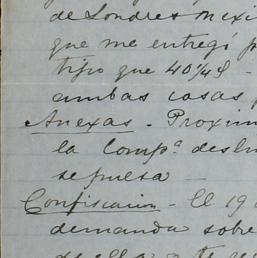 de Londres Mexi
que me entregó p
tipo que 40 1/4 d -
ambas casas p
Anexas. - Proxim
la Comp.ª desl
se puesa
Confiscación - El 19
demanda sobre